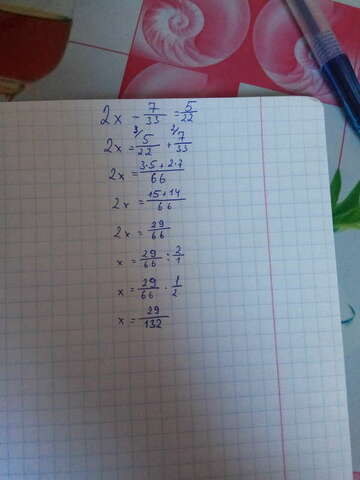 2x - 7/33 = 5/22
2x = 3/ 5/22 + 2/ 7/33
2x = 3·5+2·7/66
2x = 15+14/66
2x = 29/66
x = 29/66 : 2/1
x = 29/66 · 1/2
x = 29/132